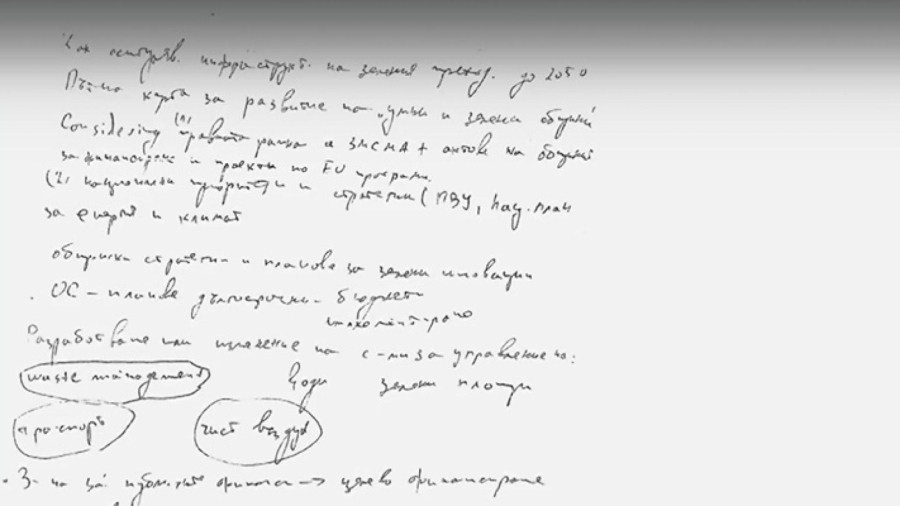 на зеления преход. до 2050
Пътна карта за развитие на "умни и зелени общини
Considering (1) правната рамка и ЗМСМА + актове на общини
за финансиране и проекти по EU програми.
(2) национални приоритети и стратегии (ПВУ, Нац. план
за енергия и климат
общински стратегии и планове за зелени иновации
. ОС - планове дългосрочни - бюджети
Разработване или изменение на с-ми за управление на:
waste management води зелени площи
транспорт чист въздух
. З-на за публичните финанси → целево финансиране